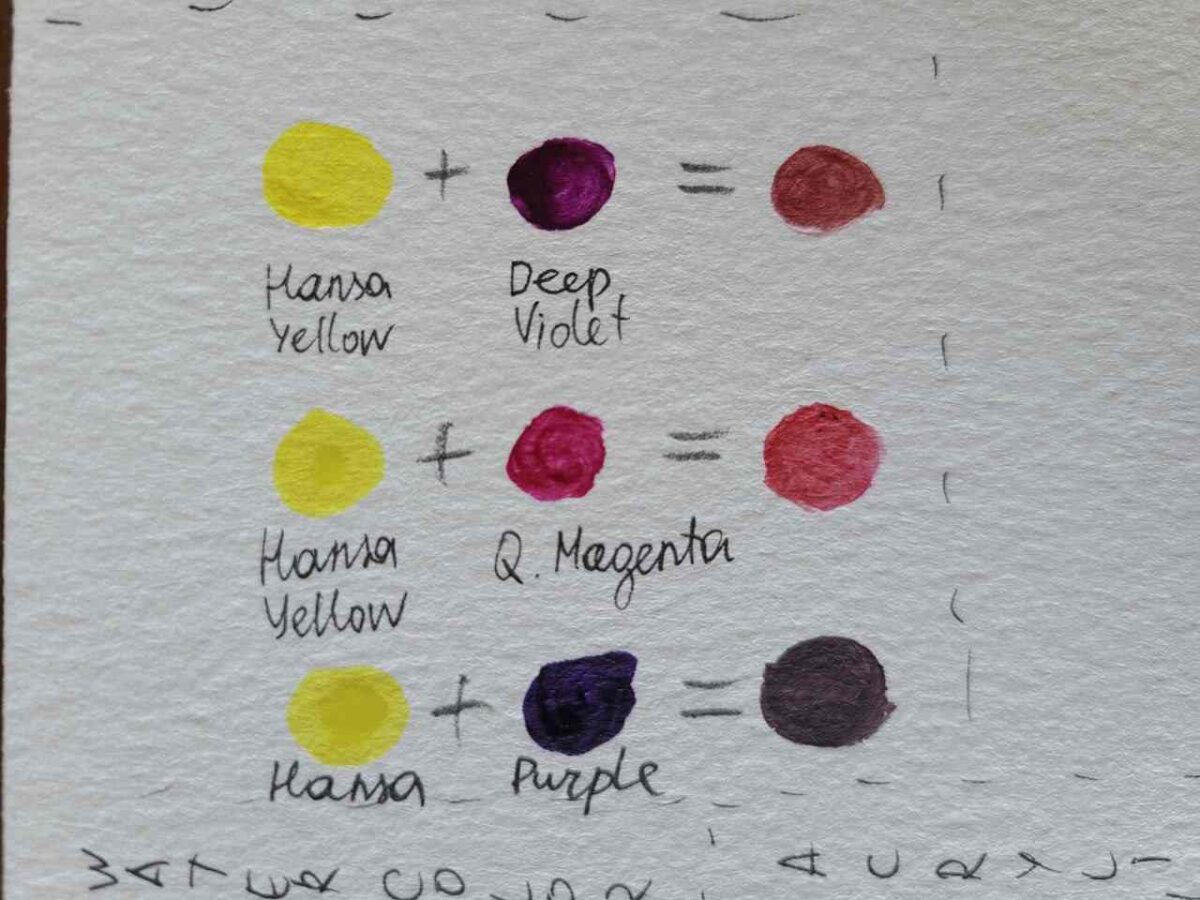 + =
Hansa Deep
Yellow Violet
+ =
Hansa Q. Magenta
Yellow
+ =
Hansa Purple
WATERCOLOR